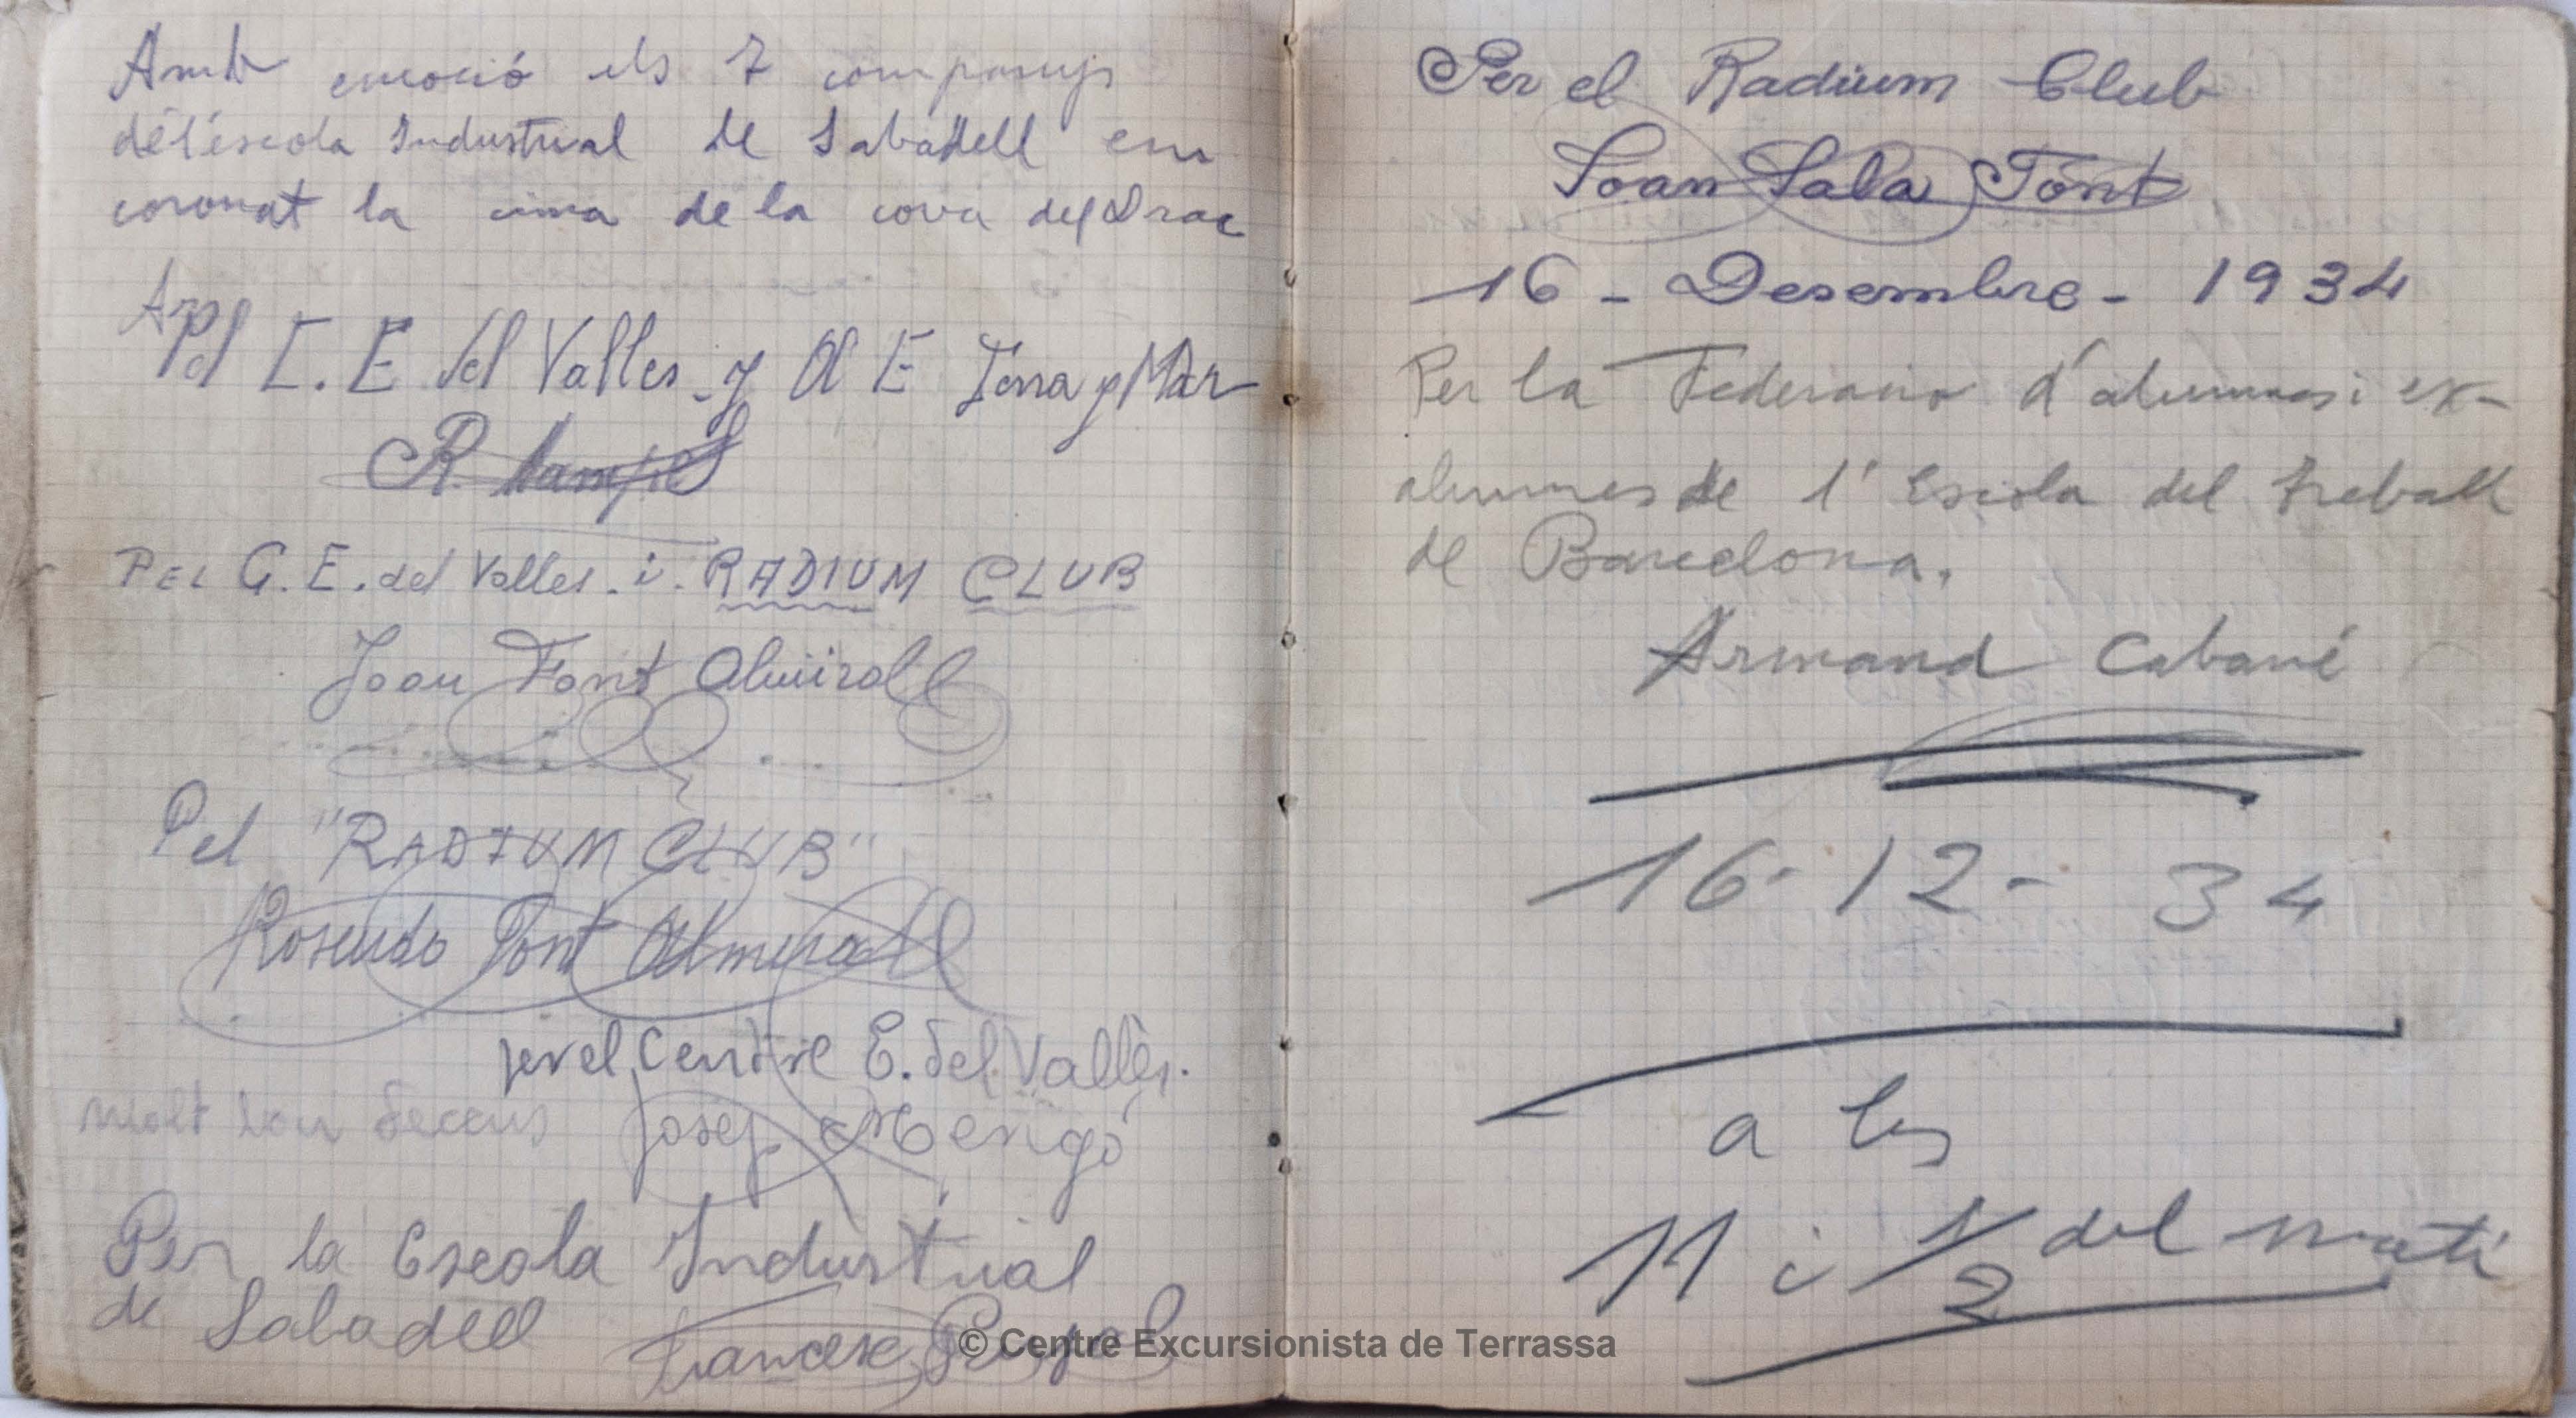 Amb emoció els 7 companys
de l'escola Industrial de Sabadell em
coronat la cima de la cova del Drac
Pel C. E del Valles y Al E Terra y Mar
R.
PEL C. E. del Valles. i. RADIUM CLUB
Joan Font Almirall
Pel "RADIUM CLUB"
Rosendo Font Almirall
per el Centre E. del Vallès.
molt bon Josep Mengó
Per la Escola Industrial
de Sabadell Francesc
Per el Radium Club
Joan Sala Font
16 - Desembre - 1934
Per la Federacio d'alumnes i ex-
alumnes de l'Escola del treball
de Barcelona.
Armand Cabané
16 - 12 - 34
a les
11 i 1/2 del matí
© Centre Excursionista de Terrassa